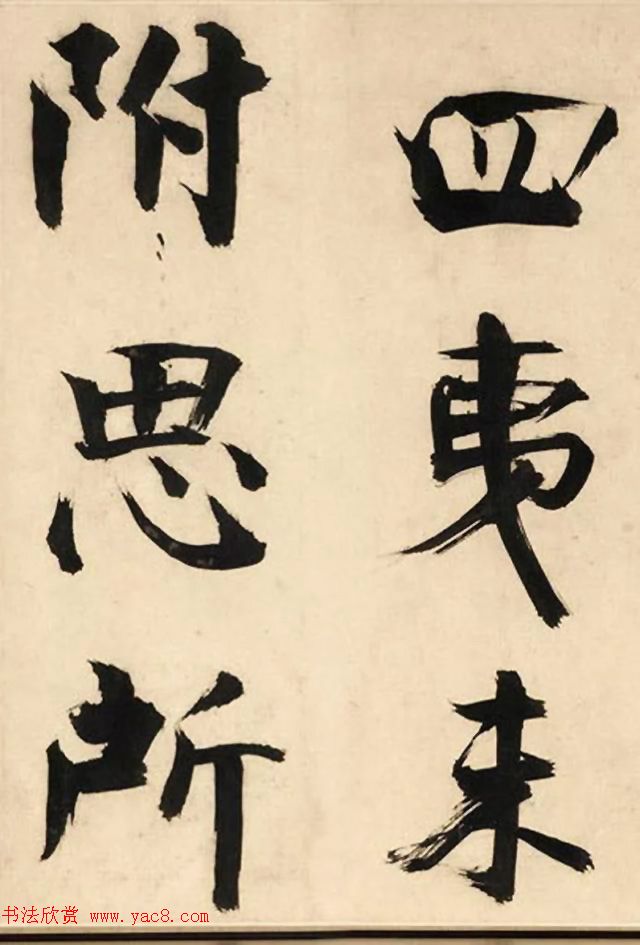 四夷未
附思所
书法欣赏 www.yac8.com